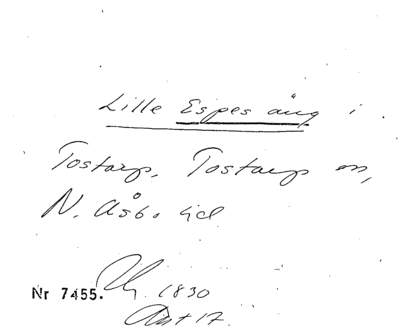 Lille Espes äng i
Tostarp, Tostarp sn,
N. Åsbo hd
Nr 7455. 1830
Akt 17